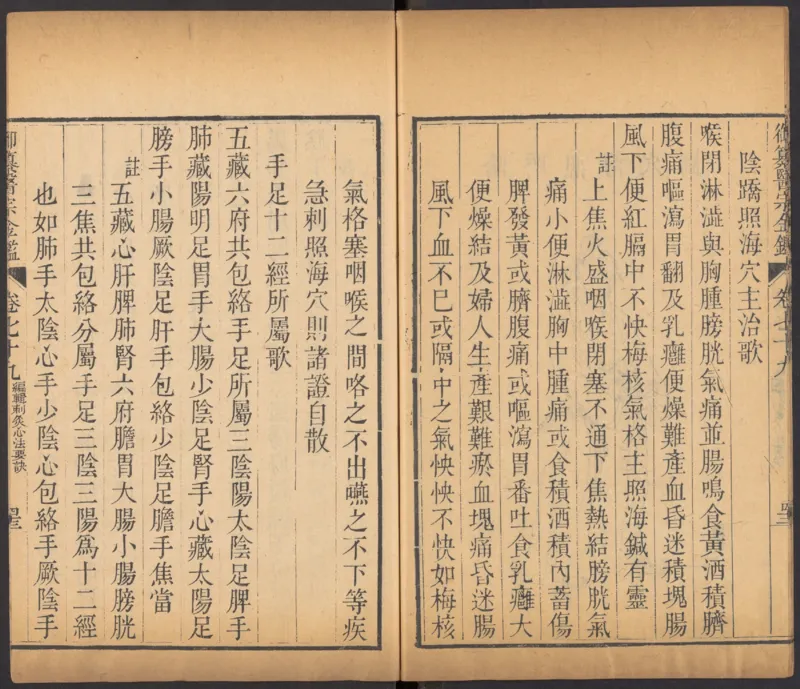 御纂醫宗金鑑 卷七十九 四三
陰蹻照海穴主治歌
喉閉淋澁與胸腫膀胱氣痛並腸鳴食黃酒積臍
腹痛嘔瀉胃翻及乳癰便燥難產血昏迷積塊腸
風下便紅膈中不快梅核氣格主照海鍼有靈
註上焦火盛咽喉閉塞不通下焦熱結膀胱氣
痛小便淋澁胸中腫痛或食積酒積內蓄傷
脾發黃或臍腹痛或嘔瀉胃番吐食乳癰大
便燥結及婦人生產艱難瘀血塊痛昏迷腸
風下血不已或隔中之氣怏怏不快如梅核
氣格塞咽喉之間咯之不出嚥之不下等疾
急刺照海穴則諸證自散
手足十二經所屬歌
五藏六府共包絡手足所屬三陰陽太陰足脾手
肺藏陽明足胃手大腸少陰足腎手心藏太陽足
膀手小腸厥陰足肝手包絡少陰足膽手焦當
註五藏心肝脾肺腎六府膽胃大腸小腸膀胱
三焦共包絡分屬手足三陰三陽爲十二經
也如肺手太陰心手少陰心包絡手厥陰手
御纂醫宗金鑑 卷七十九 編輯刺灸心法要訣 四三